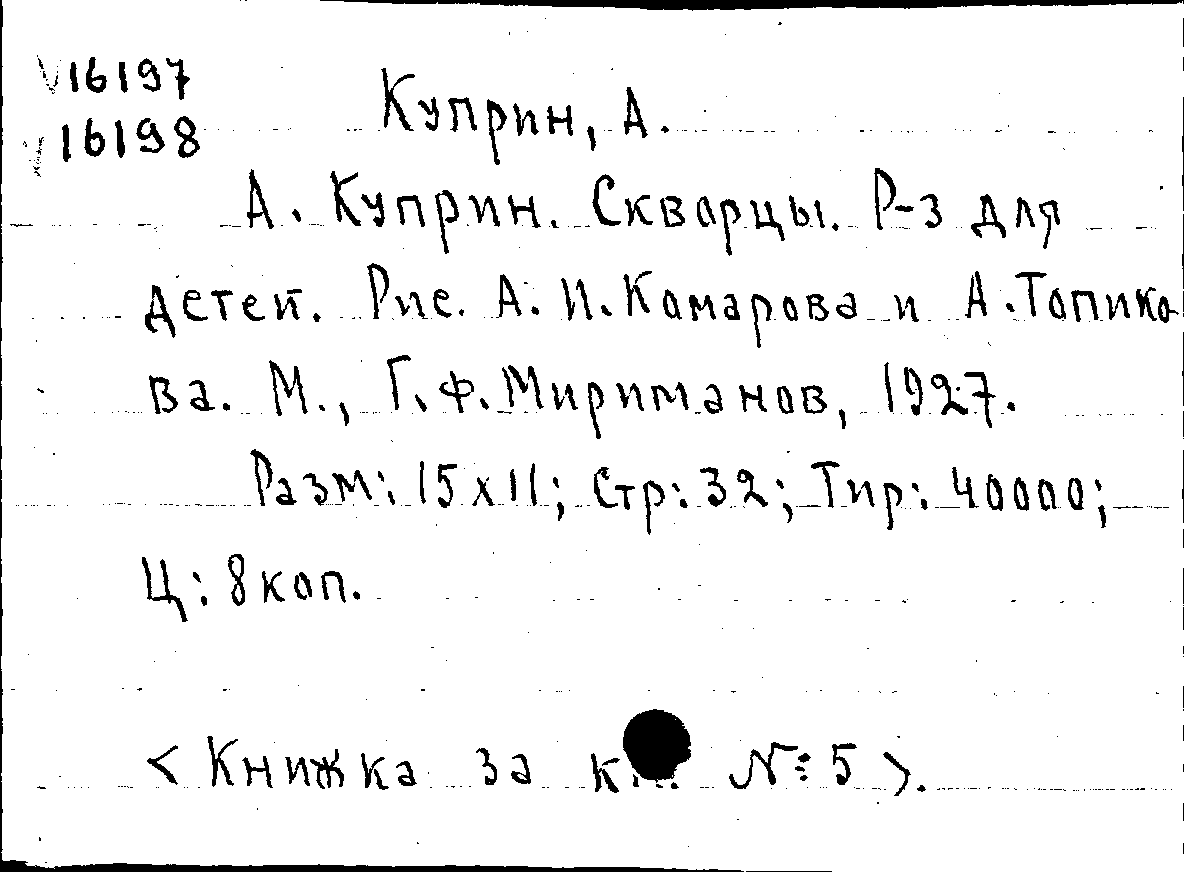 V16197
V16198
Куприн, А.
А. Куприн. Скворцы. Р-з для
детей. Рис. А. И. Комарова и А. Топико-
ва. М., Г. Ф. Мириманов, 1927.
Разм: 15х11; Стр: 32; Тир: 40000;
Ц: 8 коп.
< Книжка за № 5 >.